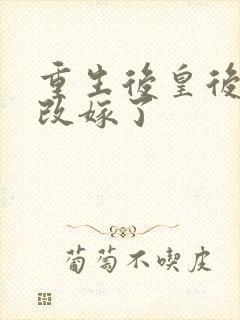 重生後皇後
改嫁了
葡萄不喫皮